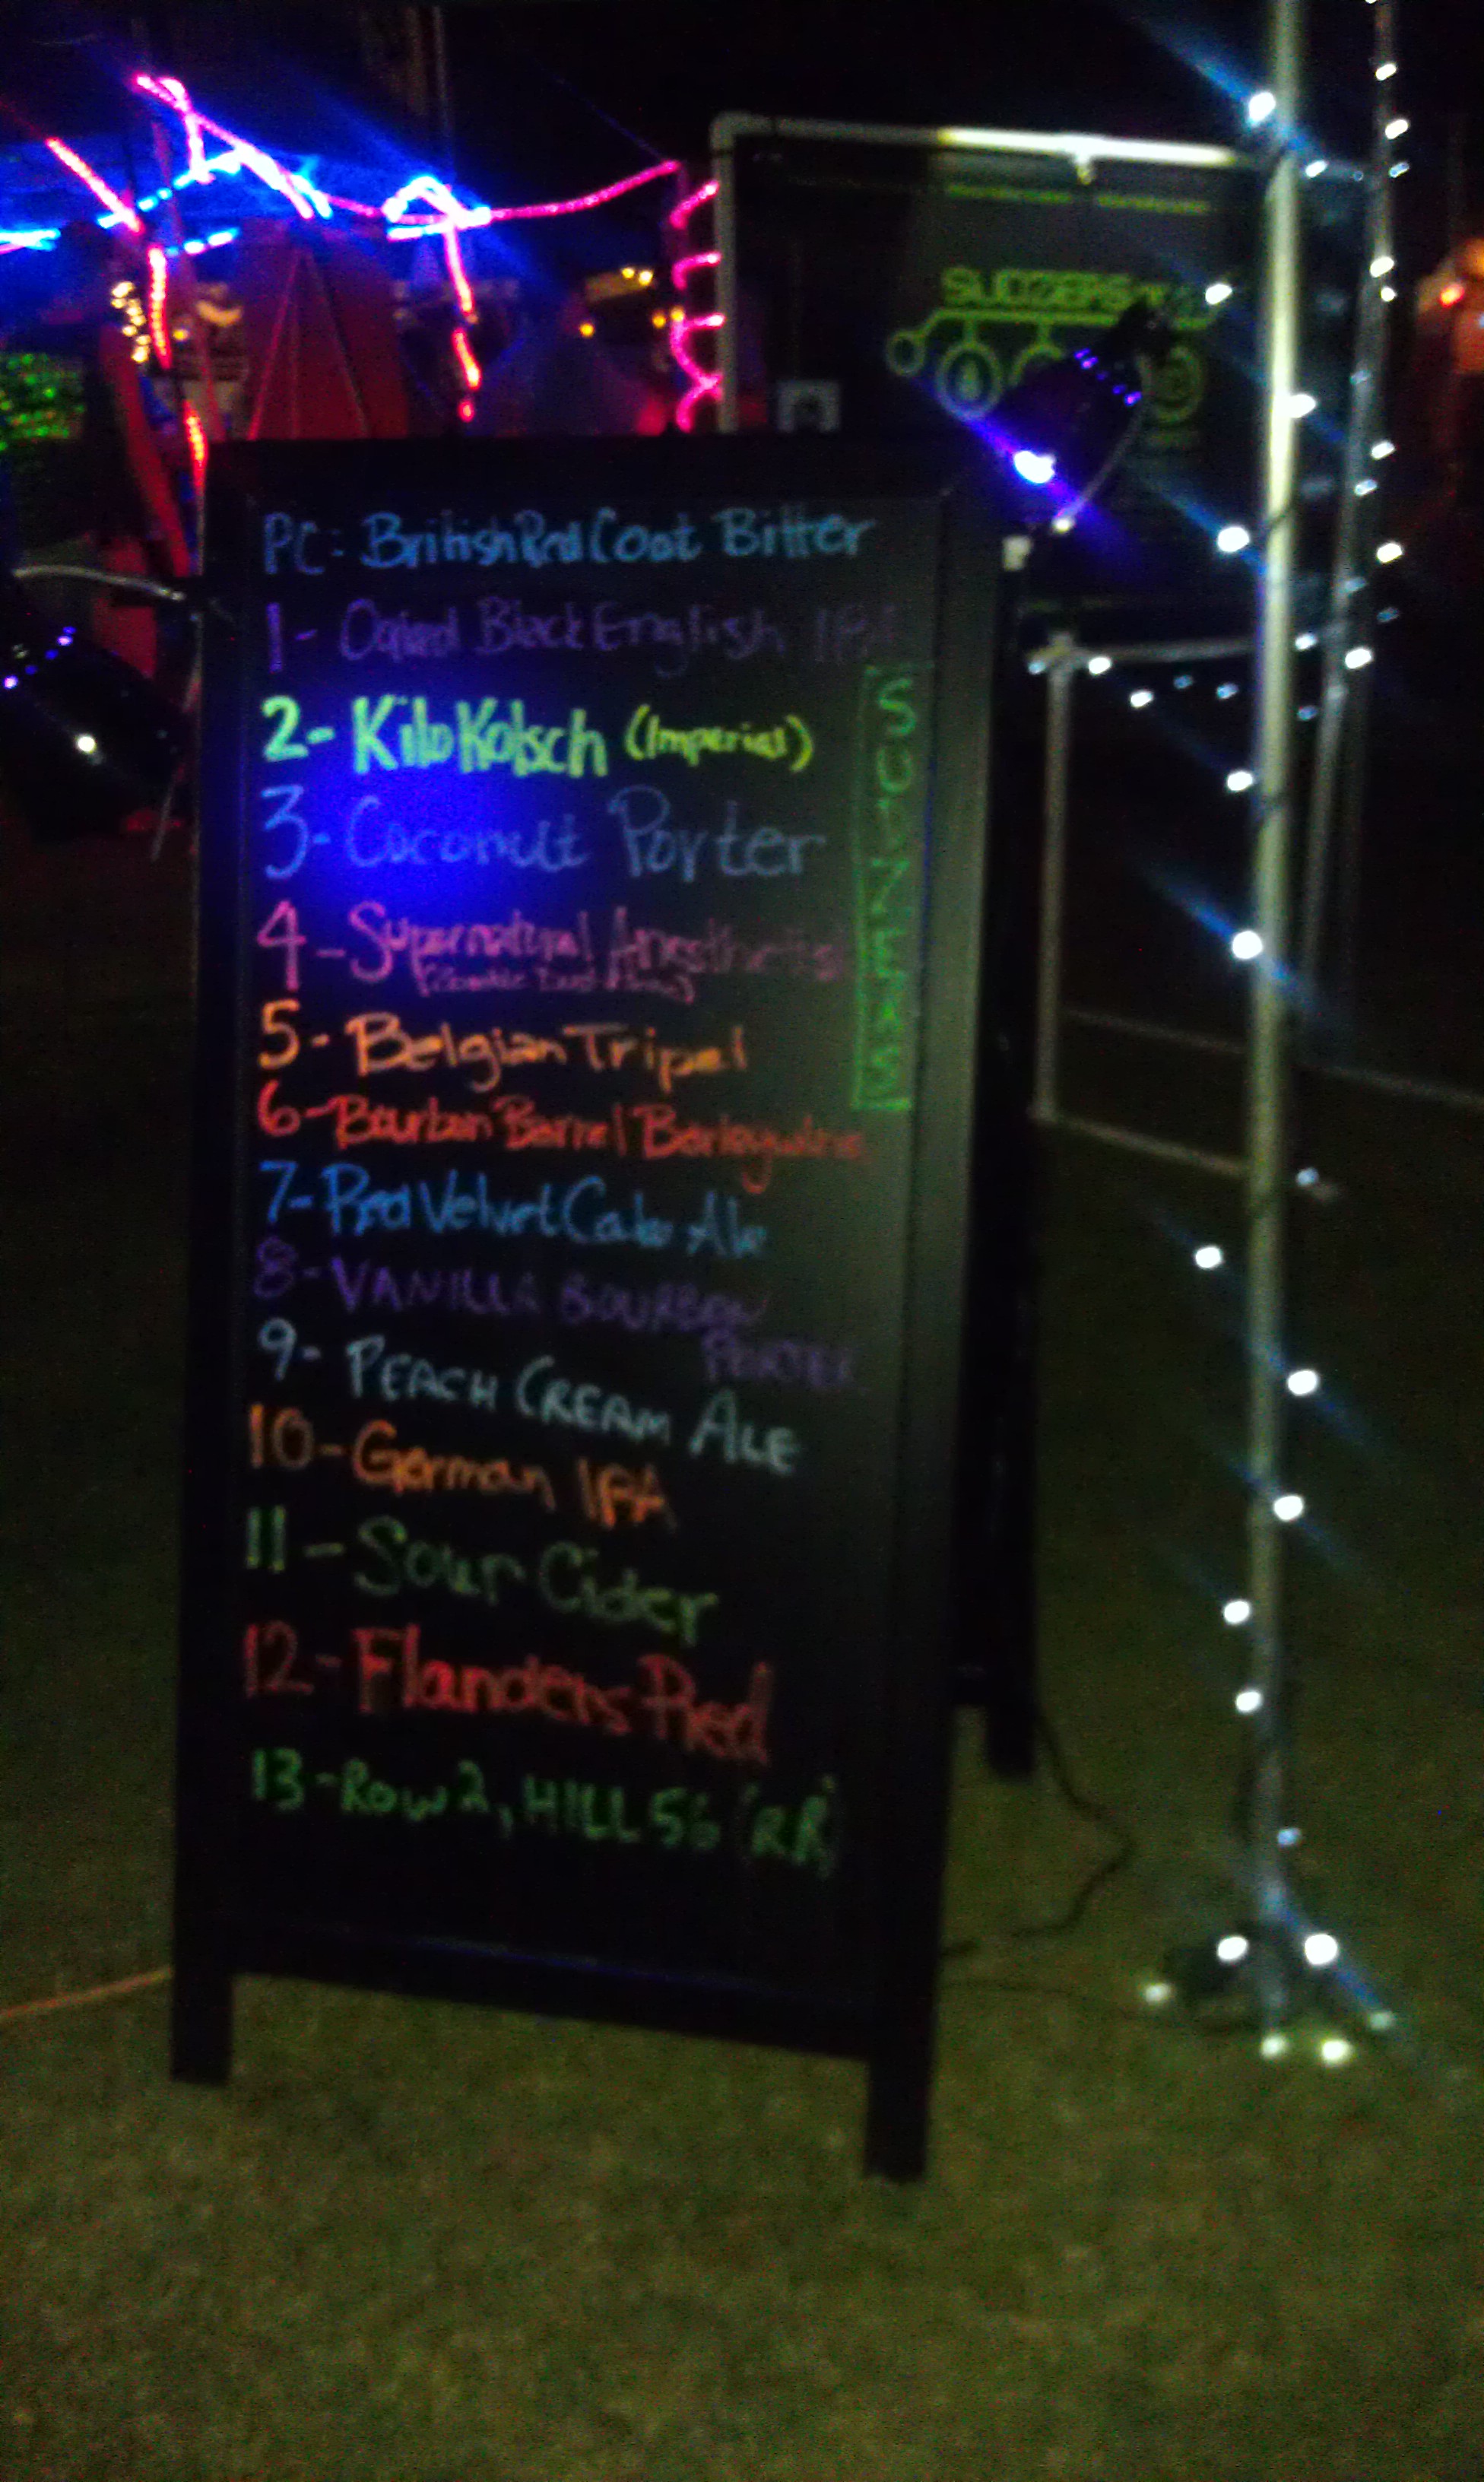 PC- British Red Coat Bitter
1- Oaked Black English IPA
2- Kilo Kolsch (Imperial)
3- Coconut Porter
4- Supernatural Anesthetist
5- Belgian Tripel
6- Bourbon Barrel Barleywine
7- Red Velvet Cake Ale
8- VANILLA BOURBON
PORTER
9- PEACH CREAM ALE
10- German IPA
11- Sour Cider
12- Flanders Red
13- Row 2, HILL 56 (RR)
SUDZERS